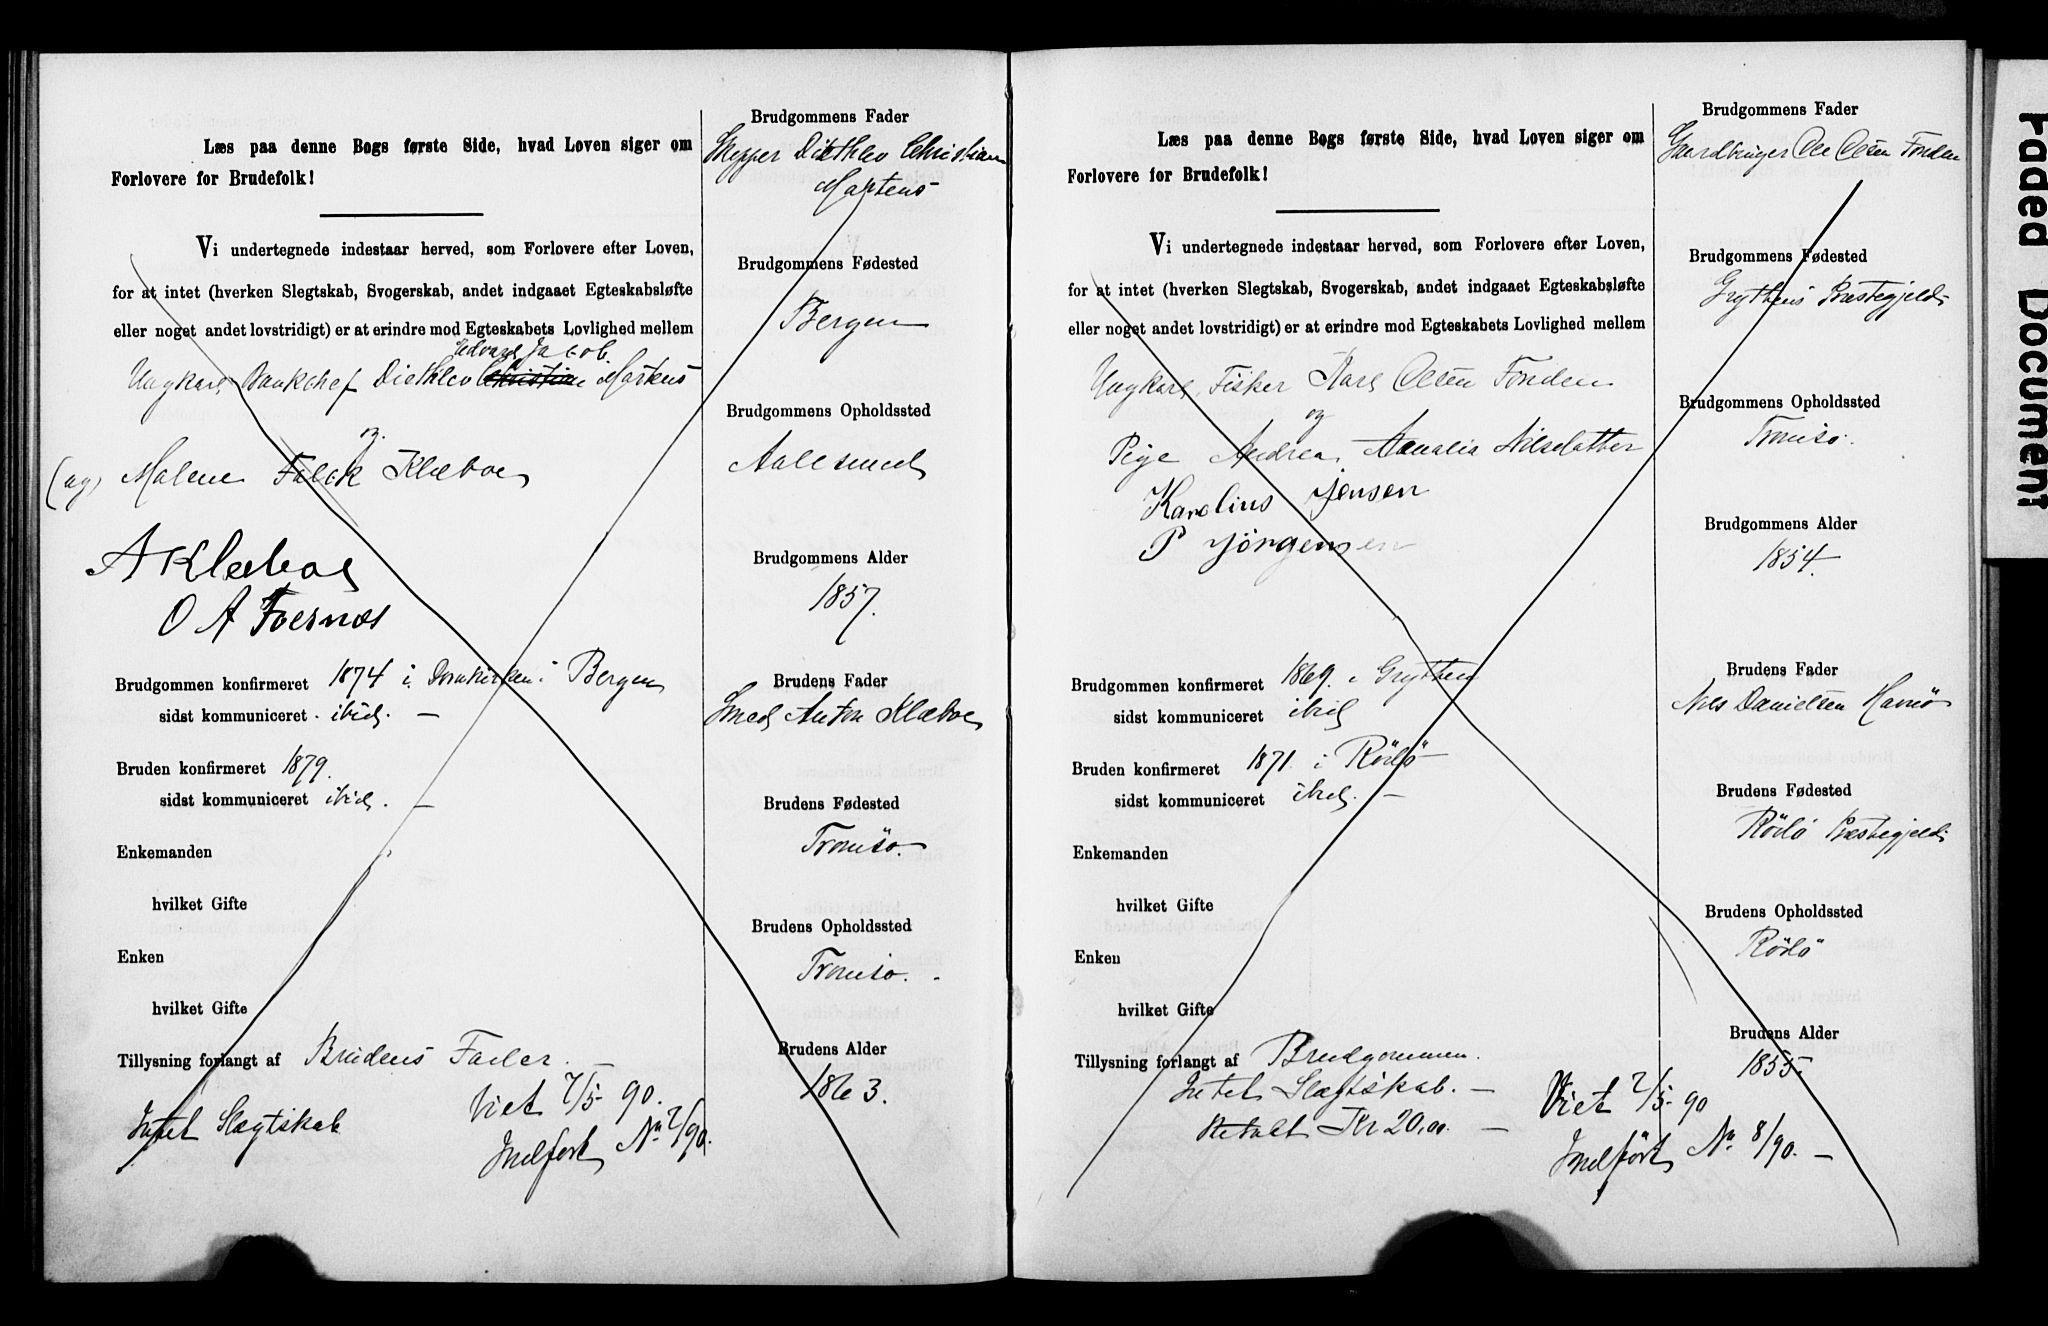 Læs paa denne Bogs første Side, hvad Loven siger om
Forlovere for Brudefolk!
Vi undertegnede indestaar herved, som Forlovere efter Loven,
for at intet (hverken Slegtskab, Svogerskab, andet indgaaet Egteskabsløfte
eller noget andet lovstridigt) er at erindre mod Egteskabets Lovlighed mellem
Edvard Jacob
Ungkarl Bankchef Diethlev Christian Martens
og
(og) Malene Falck Klæboe
A Klæboe
O A Foesnæs
Brudgommen konfirmeret 1874 i Domkirken i Bergen
sidst kommuniceret ibid. —
Bruden konfirmeret 1879.
sidst kommuniceret ibid. —
Enkemanden
hvilket Gifte
Enken
hvilket Gifte
Tillysning forlangt af Brudens Fader. —
Intet Slægtskab
Viet 7/5 90.
Indført No 7/90.
Brudgommens Fader
Skipper Diethlev Christian
Martens
Brudgommens Fødested
Bergen
Brudgommens Opholdssted
Aalesund
Brudgommens Alder
1857.
Brudens Fader
Smed Anton Klæboe
Brudens Fødested
Tromsø.
Brudens Opholdssted
Tromsø.
Brudens Alder
1863.
Læs paa denne Bogs første Side, hvad Loven siger om
Forlovere for Brudefolk!
Vi undertegnede indestaar herved, som Forlovere efter Loven,
for at intet (hverken Slegtskab, Svogerskab, andet indgaaet Egteskabsløfte
eller noget andet lovstridigt) er at erindre mod Egteskabets Lovlighed mellem
Ungkarl Fisker Karl Olsen Fonden
og
Pige Andrea Amalia Nilsdatter
Karolius Jensen
P Jörgensen
Brudgommen konfirmeret 1869. i Grytten
sidst kommuniceret ibid
Bruden konfirmeret 1871. i Rödö
sidst kommuniceret ibid. —
Enkemanden
hvilket Gifte
Enken
hvilket Gifte
Tillysning forlangt af Brudgommen.
Intet Slægtskab. —
Betalt Kr 20,00. —
Viet 7/5 90
Indført No 8/90. —
Brudgommens Fader
Gaardbruger Ole Olsen Fonden
Brudgommens Fødested
Gryttens Præstegjeld
Brudgommens Opholdssted
Tromsö.
Brudgommens Alder
1854.
Brudens Fader
Nils Danielsen Havnö
Brudens Fødested
Rödö Præstegjeld
Brudens Opholdssted
Rödö
Brudens Alder
1855.
Faded Document